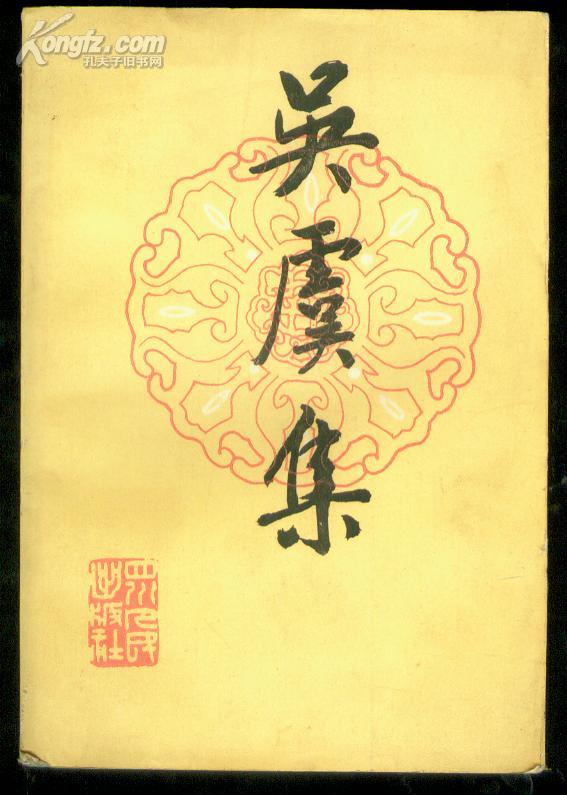 Kongfz.com
孔夫子旧书网
吴虞集
四川人民
出版社